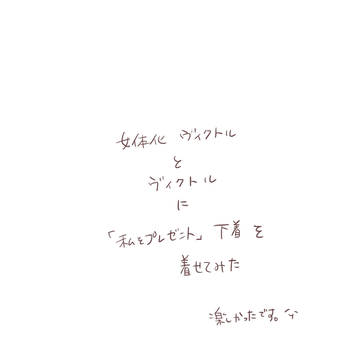 女体化 ヴィクトル
と
ヴィクトル
に
「私をプレゼント」下着を
着せてみた
楽しかったです。